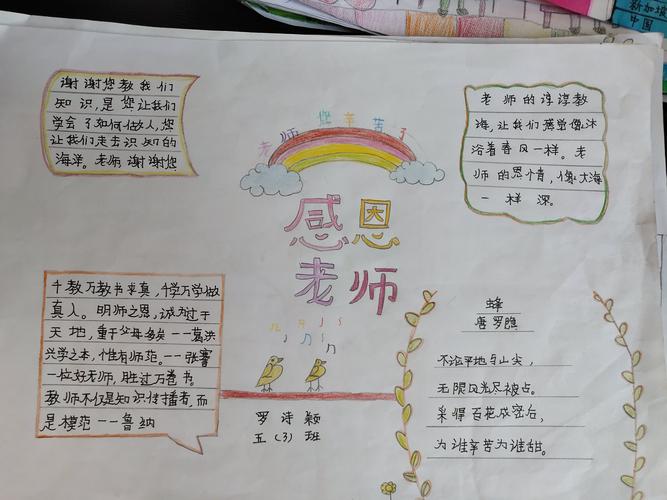 新加坡
中国
谢谢您教我们
知识,是您让我们
学会了如何做人,您
让我们走去识知的
海洋。老师谢谢您
老师您辛苦了
感恩
老师
老师的谆谆教
海,让我们感觉像沐
浴着春风一样。老
师的恩情,像大海
一样深。
千教万教书来真,千学万学做
真人。明师之恩,诚为过于
天地,重于父母多矣——葛洪
兴学之本,惟有师范。——张謇
一位好无师,胜过万卷书。
教师不仅是知识传播者,而
是模范——鲁纳
罗诗颖
五(3)班
蜂
唐罗隐
不论平地与山尖,
无限风光尽被占。
采得百花成密后,
为谁辛苦为谁甜。